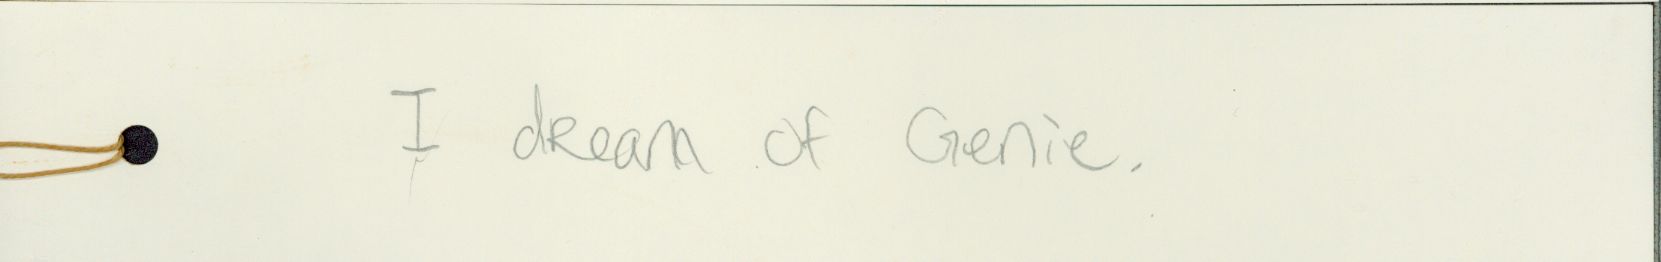 I dream of Genie.